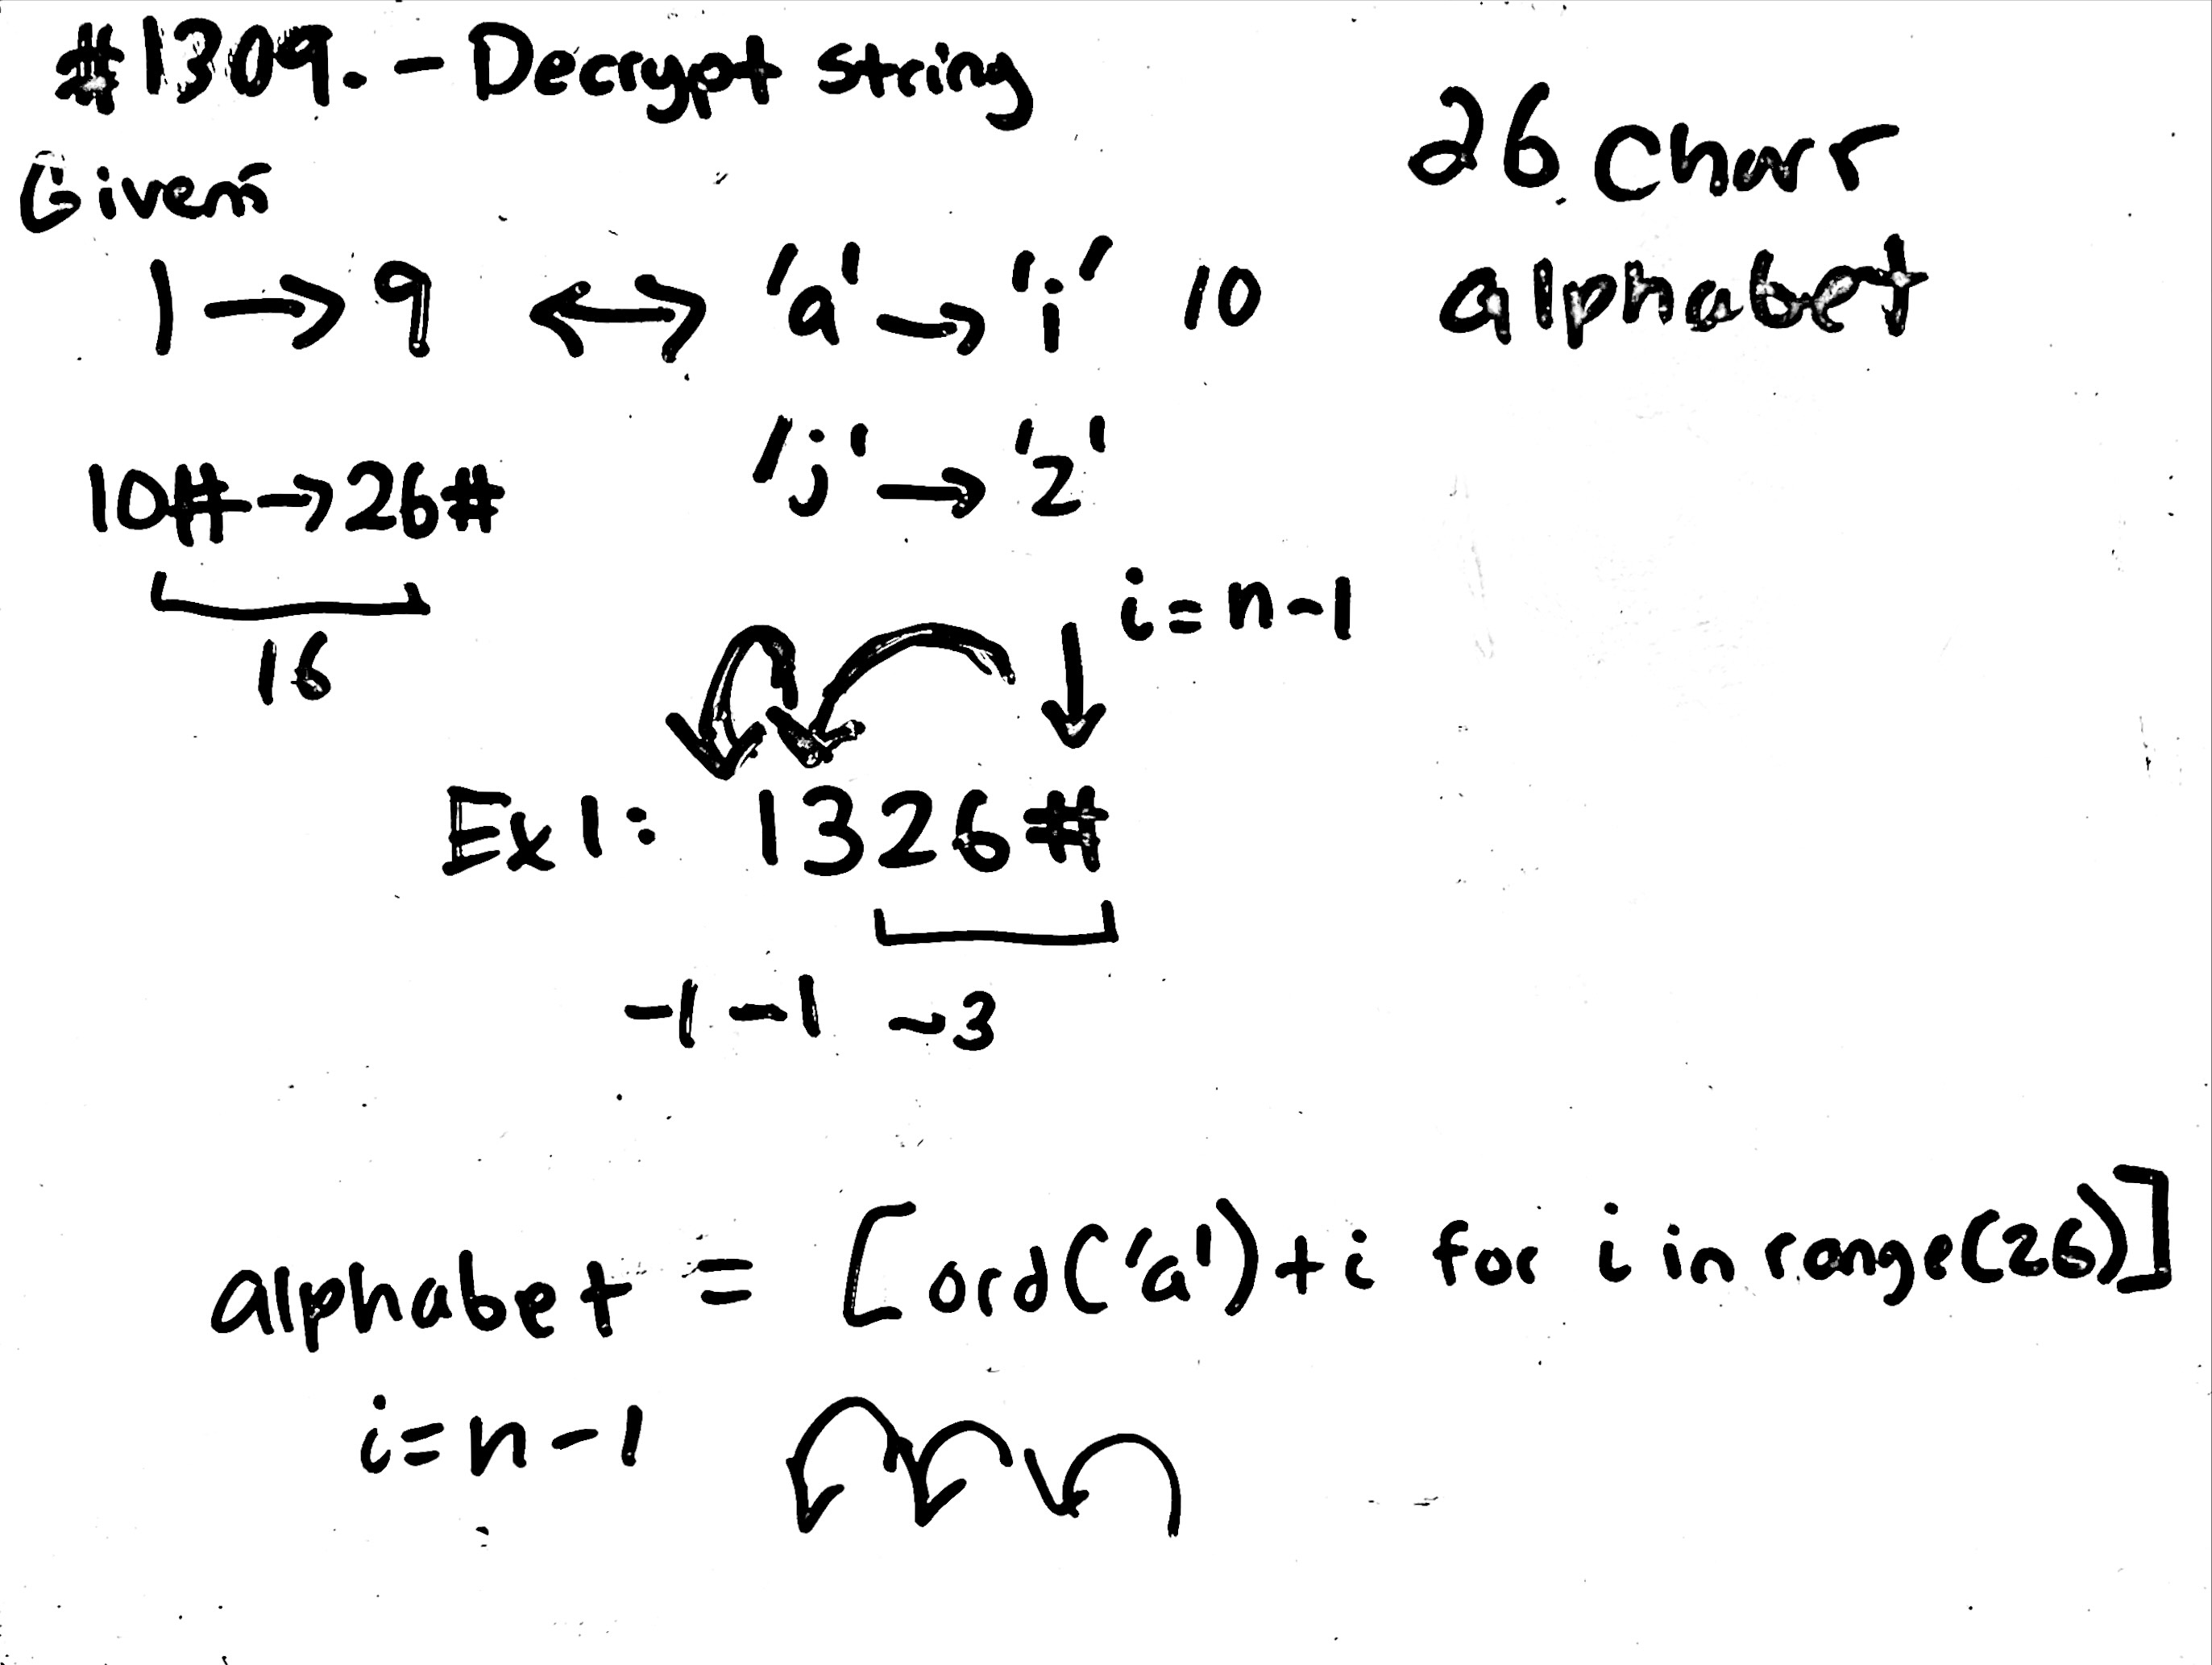 #1309. - Decrypt string
26 Char
Given
alphabet
1 → 9 ↔ 'a' → 'i' 10
10# → 26# 'j' → 'z'
16
i=n-1
Ex1: 1326#
-1 -1 ~3
alphabet = [ord('a')+i for i in range(26)]
i=n-1